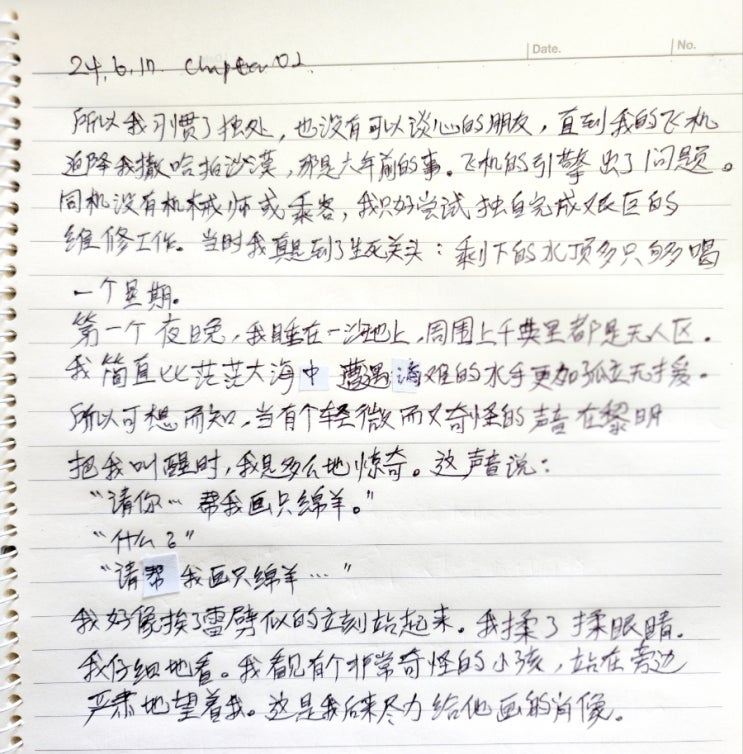 Date.
No.
24.6.17. Chapter 02.
所以我习惯了独处，也没有可以谈心的朋友，直到我的飞机
迫降我撒哈拍沙漠，那是六年前的事。飞机的引擎出了问题。
同机没有机械师或乘客，我只好尝试独自完成艰巨的
维修工作。当时我真是到了生死关头：剩下的水顶多只够喝
一个星期。
第一个夜晚，我睡在一沙地上，周围上千英里都是无人区。
我简直比茫茫大海中遭遇海难的水手更加孤立无援。
所以可想而知，当有个轻微而又奇怪的声音在黎明
把我叫醒时，我是多么地惊奇。这声音说：
“请你…帮我画只绵羊。”
“什么？”
“请帮我画只绵羊…”
我好像挨了雷劈似的立刻站起来。我揉了揉眼睛.
我仔细地看。我看见有个非常奇怪的小孩，站在旁边
严肃地望着我。这是我后来尽力给他画的肖像。